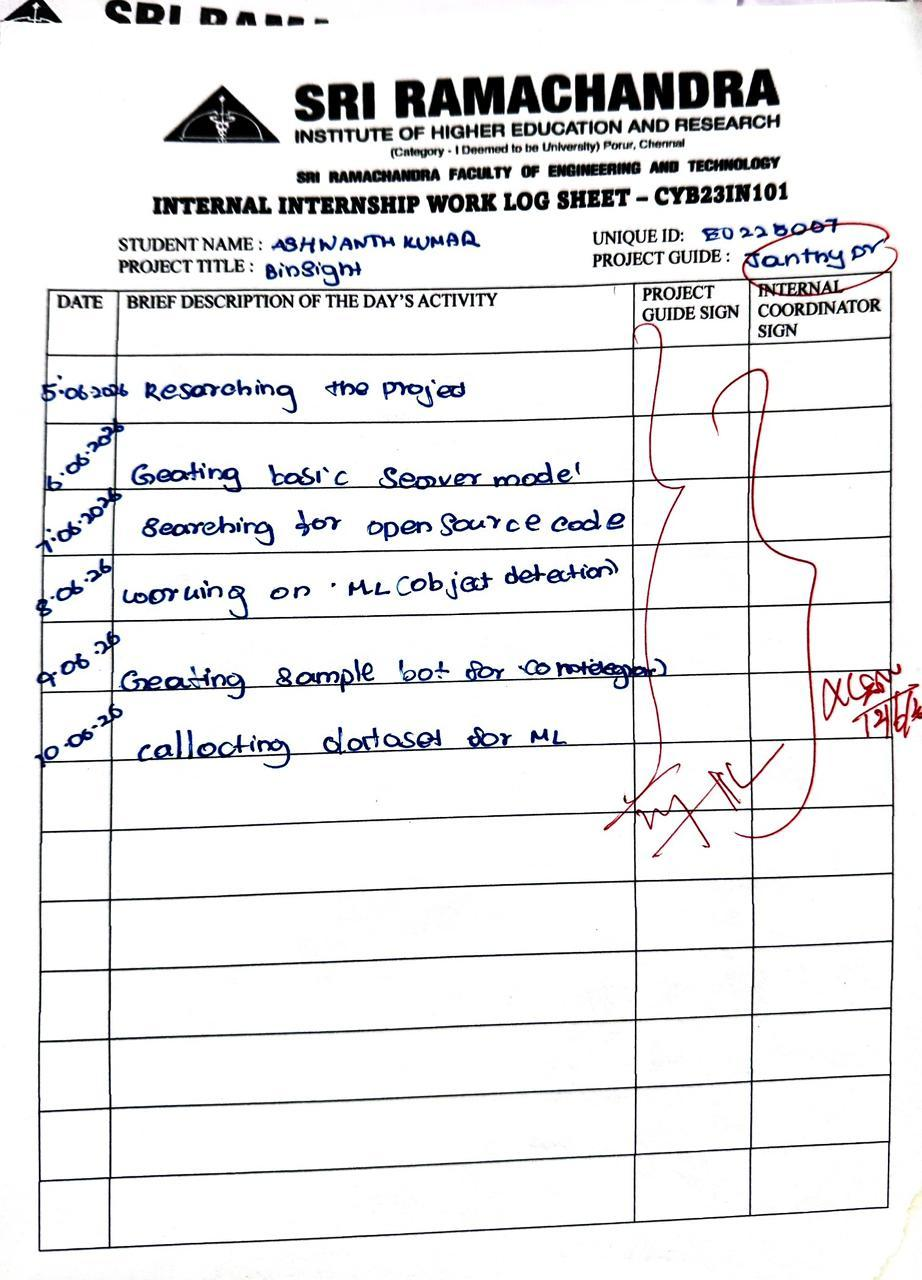 SRI RAMACHANDRA
INSTITUTE OF HIGHER EDUCATION AND RESEARCH
(Category - I Deemed to be University) Porur, Chennai
SRI RAMACHANDRA FACULTY OF ENGINEERING AND TECHNOLOGY
INTERNAL INTERNSHIP WORK LOG SHEET – CYB23IN101
STUDENT NAME : ASHWANTH KUMAR UNIQUE ID:
PROJECT TITLE : BinSight PROJECT GUIDE :
DATE BRIEF DESCRIPTION OF THE DAY'S ACTIVITY PROJECT GUIDE SIGN INTERNAL COORDINATOR SIGN
5.06.2026 Resarching the project
6.06.2026 Creating basic server model
7.06.2026 Searching for open source code
8.06.26 working on ML (object detection)
9.06.26 Creating sample bot for
10.06.26 callocting dataset for ML